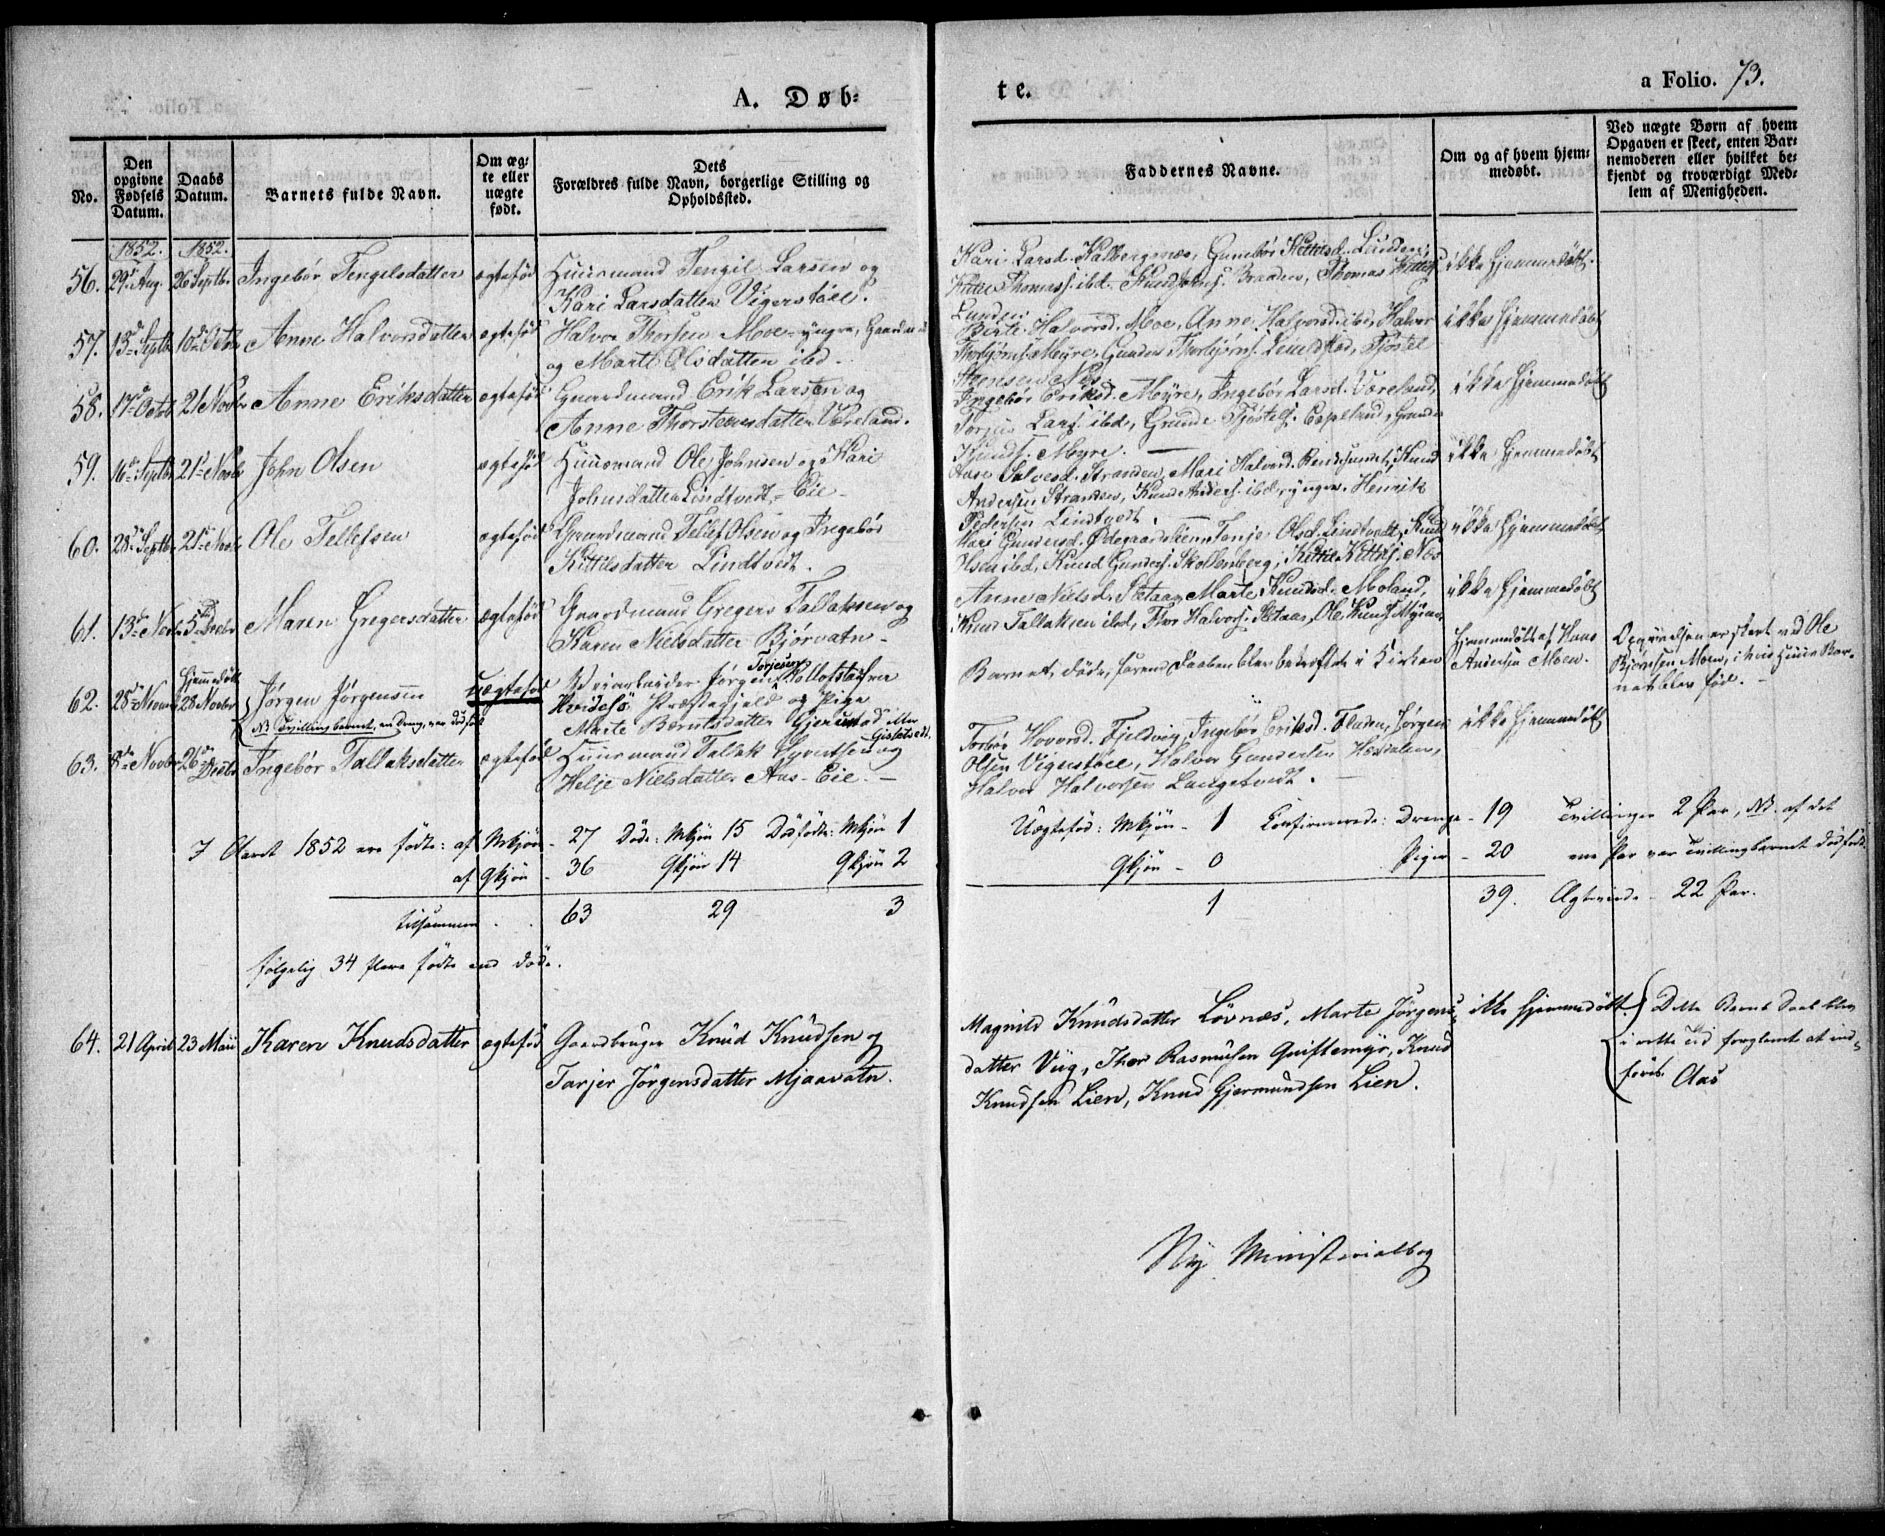 A. Døb-
te.
a Folio. 73.
No.
Den opgivne Fødsels Datum.
Daabs Datum.
Barnets fulde Navn.
Om ægte eller uægte født.
Dets
Forældres fulde Navn, borgerlige Stilling og
Opholdssted.
Faddernes Navne.
Om og af hvem hjemmedøbt.
Ved uægte Børn af hvem
Opgaven er skeet, enten Bar-
nemoderen eller hvilket be-
kjendt og troværdigt Med-
lem af Menigheden.
1852. 1852.
56. 29de Aug. 26 Septbr. Ingebør Tengelsdatter ægtefød Huusmand Tengil Larsen og
Kari Larsdatter Vigerstöel.
Kari Larsd. Kalbergnæs, Gunebör Kittilsd. Lunden,
Kittil Thomass. ibd. Knud Johns. Braaden, Thomas Kittils.
Lunden
ikke hjemmedøbt
57. 13de Septbr 10de Octbr Anne Halvorsdatter ægtefød Halvor Thorsen Moe yngre, Gaardm.
og Marte Olsdatter ibd.
Birte Halvorsd. Moe, Anne Halvorsd. ibd., Halvor
Thorbjørns. Myre, Gunder Thorbjørns. Lindstad, Tjøstel
Steensen Næs
ikke hjemmedøbt
58. 17de Octob 21 Novbr Anne Eriksdatter ægtefød Gaardmand Erik Larsen og
Anne Thorstensdatter Væreland.
Ingebör Eriksd. Myre, Ingebör Larsd. Væreland,
Torjus Lars. ibd, Grunde Tjøstels. Espeland, Grunde
Knuds. Myre.
ikke hjemmedøbt
59. 16de Septbr 21de Novbr John Olsen ægtefød Huusmand Ole Johnsen og Kari
Johnsdatter Lindtvedt-Eie
Aase Salvesd. Stranden, Mari Halvorsd. Reiersundet, Knud
Andersen Stranden, Knud Anders. ibd. yngre, Henrik
Pedersen Lindtvedt.
ikke hjemmedøbt
60. 28de Septbr 21de Novbr Ole Tellefsen ægtefød Gaardmand Tellef Olsen og Ingebör
Kittilsdatter Lindtvedt.
Mari Gundersd. Ødegaardskien, Tonje Olsd. Lindtvedt, Knud
Olsen ibd, Knud Gunders. Skollenberg, Kittil Kittils. Næs
ikke hjemmedøbt
61. 13de Novbr 5te Decbr Maren Gregersdatter ægtefød Gaardmand Gregers Tallaksen og
Karen Nielsdatter Bjørvatn
Anne Nielsd. Sletaas, Marte Knudsd. Moland,
Knud Tallaksen ibd, Thor Halvors. Sletaas, Ole Knuds. Myraas
ikke hjemmedøbt
62. 28de Novbr Hjemmedøbt 28 Novbr Jørgen Jørgensen uægtefød Veiarbeider Jørgen Torjesen Rollofstad fra
Hvidesö Præstegjeld og Pige
Marte Berntsdatter Gjerustad eller
Gislotvedt.
NB Tvillingbarnet, en Dreng, var dødfødt
Barnet døde, førend Daaben blev bekræftet i Kirken
Hjemmedøbt af Hans
Andersen Moen.
Opgivelsen er skeet ved Ole
Bjørnsen Moen, i hvis Huus Bar-
net blev født.
63. 8de Novbr 26de Decbr Ingebør Tallaksdatter ægtefød Huusmand Tallak Gjeruldsen og
Helje Nielsdatter Aas-Eie.
Torbör Hovorsd. Fjeldvig, Ingebör Eriksd. Floden, Jørgen
Olsen Vigerstöel, Halvor Gundersen Hæsdalen,
Halvor Halvorsen Langetvedt.
ikke hjemmedøbt
I Aaret 1852 ere födte: af Mkjön 27 Døde: Mkjön 15 Dødfødte: Mkjön 1
af Qkjön 36 Qkjön 14 Qkjön 2
tilsammen 63 29 3
følgelig 34 flere födte end döde.
Uægtefød: Mkjön 1 Confirmerede: Drenge 19
Qkjön 0 Piger 20
1 39.
Tvillinger 2 Par, NB. af det
ene Par var Tvillingbarnet dødfødt
Ægteviede 22 Par.
64. 21 April 23 Maii Karen Knudsdatter ægtefød Gaardbruger Knud Knudsen og
Tarjer Jörgensdatter Mjaavatn.
Magnild Knudsdatter Løvnæs, Marte Jørgens-
datter Viig, Thor Rasmusen Quistemyr, Knud
Knudsen Lien, Knud Gjermundsen Lien.
ikke hjemmedøbt
Dette Barns Daab blev
i rette Tid forglemt at ind-
føres. Aas
Ny Ministerialbog